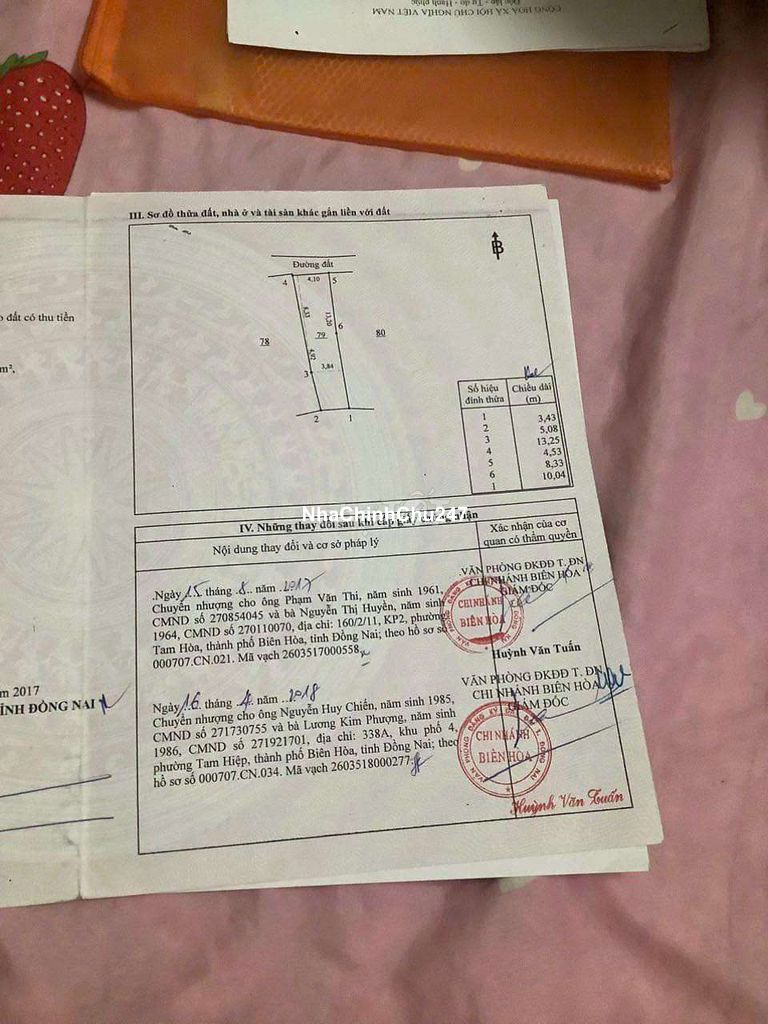 CỘNG HÒA XÃ HỘI CHỦ NGHĨA VIỆT NAM
Độc lập - Tự do - Hạnh phúc
III. Sơ đồ thửa đất, nhà ở và tài sản khác gắn liền với đất
B
Đường đất
4 4,10 5
8,33 13,20
6
78 79 80
4,92
3 3,84
2 1
Số hiệu đỉnh thửa Chiều dài (m)
1 3,43
2 5,08
3 13,25
4 4,53
5 8,33
6 10,04
1
đất có thu tiền
m²,
2017
ỈNH ĐỒNG NAI
NhaChinhChu247
IV. Những thay đổi sau khi cấp
Nội dung thay đổi và cơ sở pháp lý
Xác nhận của cơ quan có thẩm quyền
Ngày 15 tháng 8 năm 2017
Chuyển nhượng cho ông Phạm Văn Thi, năm sinh 1961,
CMND số 270854045 và bà Nguyễn Thị Huyền, năm sinh
1964, CMND số 270110070, địa chỉ: 160/2/11, KP2, phường
Tam Hòa, thành phố Biên Hòa, tỉnh Đồng Nai; theo hồ sơ số
000707.CN.021. Mã vạch 2603517000558
VĂN PHÒNG ĐKĐĐ T. ĐN
CHI NHÁNH BIÊN HÒA
GIÁM ĐỐC
CHI NHÁNH
BIÊN HÒA
Huỳnh Văn Tuấn
Ngày 16 tháng 4 năm 2018
Chuyển nhượng cho ông Nguyễn Huy Chiến, năm sinh 1985,
CMND số 271730755 và bà Lương Kim Phượng, năm sinh
1986, CMND số 271921701, địa chỉ: 338A, khu phố 4,
phường Tam Hiệp, thành phố Biên Hòa, tỉnh Đồng Nai; theo
hồ sơ số 000707.CN.034. Mã vạch 2603518000277
VĂN PHÒNG ĐKĐĐ T. ĐN
CHI NHÁNH BIÊN HÒA
GIÁM ĐỐC
CHI NHÁNH
BIÊN HÒA
Huỳnh Văn Tuấn